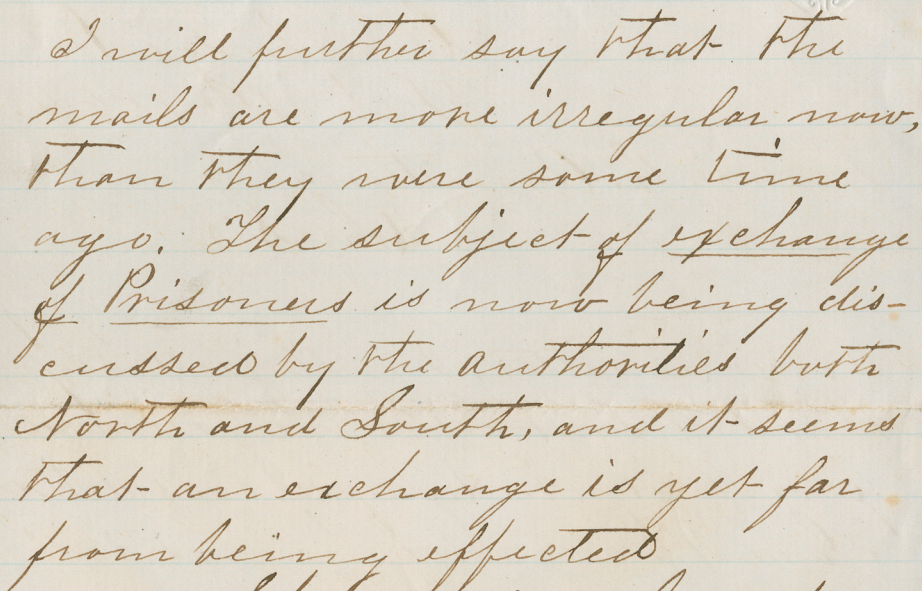 I will further say that the
mails are more irregular now,
than they were some time
ago. The subject of exchange
of Prisoners is now being dis-
cussed by the authorities both
North and South, and it seems
that an exchange is yet far
from being effected